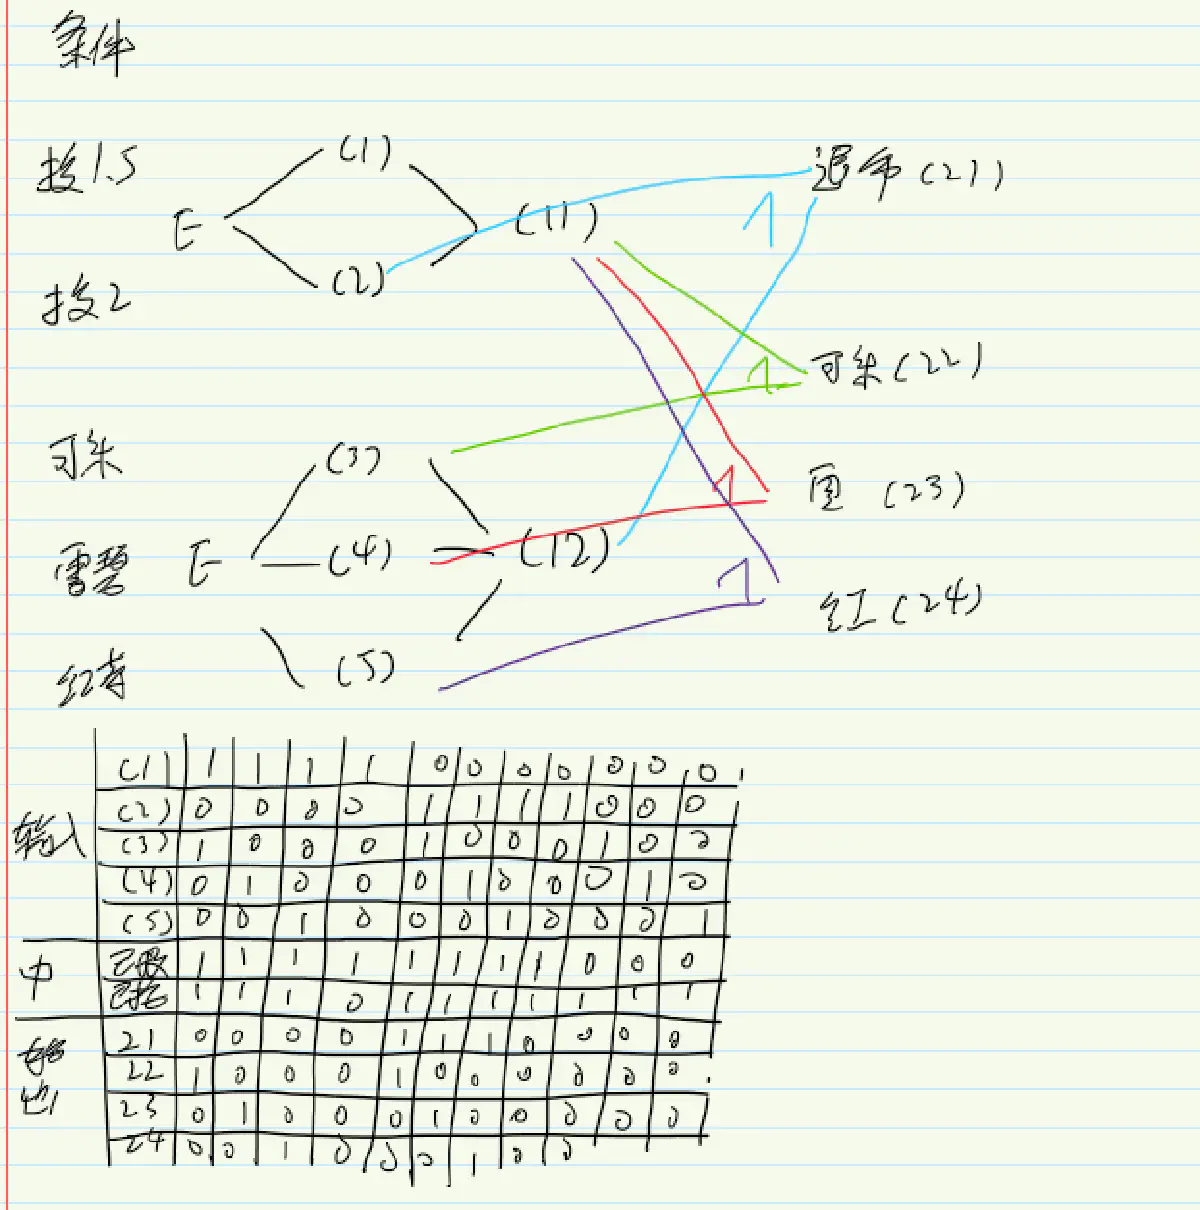 条件
投1.5
E
(1)
(2)
(11)
退币(21)
1
投2
可乐(22)
1
可乐
(3)
雪碧
E
(4)
(12)
雪(23)
1
红(24)
1
红茶
(5)
输入
(1) 1 1 1 1 0 0 0 0 0 0 0
(2) 0 0 0 0 1 1 1 1 0 0 0
(3) 1 0 0 0 1 0 0 0 1 0 0
(4) 0 1 0 0 0 1 0 0 0 1 0
(5) 0 0 1 0 0 0 1 0 0 0 1
中
已投 1 1 1 1 1 1 1 1 0 0 0
1 1 1 0 1 1 1 1 1 1 1
输出
21 0 0 0 0 1 1 1 0 0 0 0
22 1 0 0 0 1 0 0 0 0 0 0
23 0 1 0 0 0 1 0 0 0 0 0
24 0 0 1 0 0 0 1 0 0